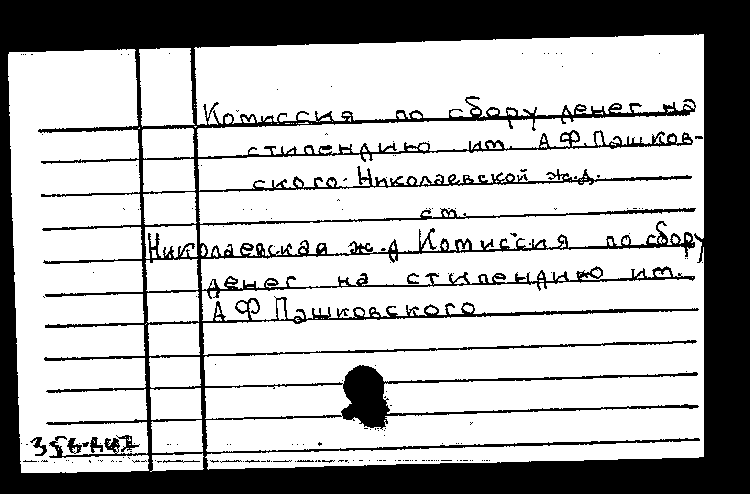 Комиссия по сбору денег на
стипендию им. А.Ф.Пашков-
ского. Николаевской ж.д.
см.
Николаевская ж.д Комиссия по сбору
денег на стипендию им.
А Ф Пашковского